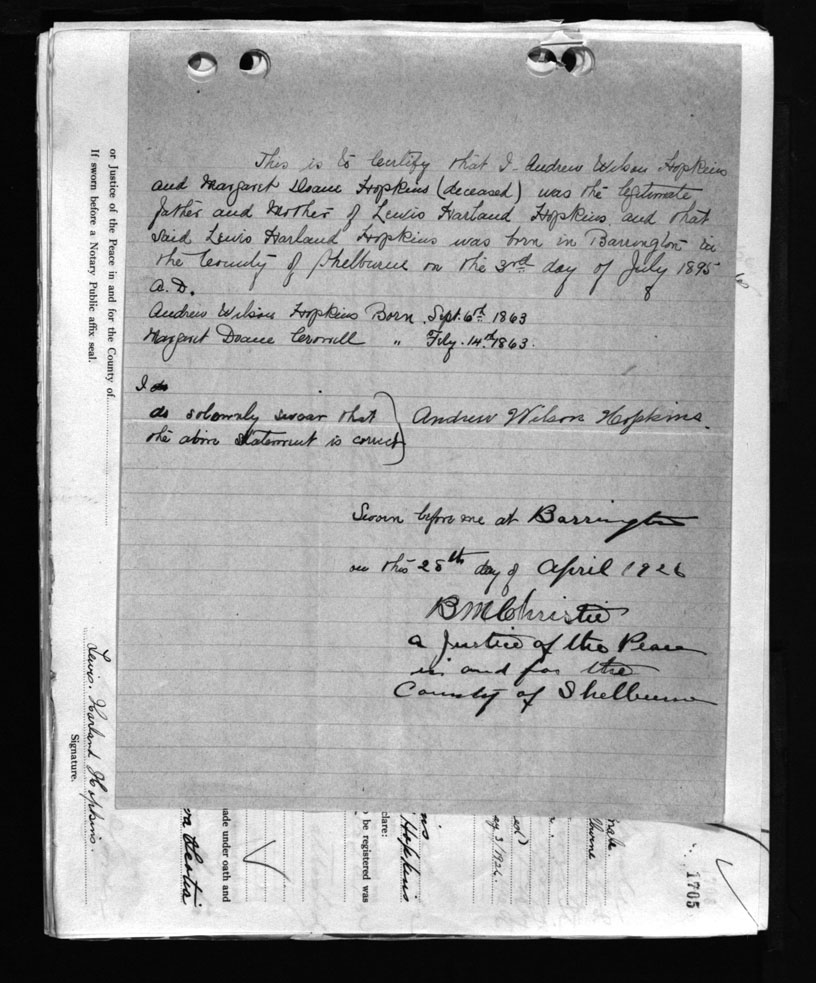 This is to Certify that I Andrew Wilson Hopkins
and Margaret Doane Hopkins (deceased) was the legitimate
father and Mother of Lewis Harland Hopkins and that
said Lewis Harland Hopkins was born in Barrington in
the County of Shelburne on the 3rd day of July 1895
A.D.
Andrew Wilson Hopkins Born Sept. 6th 1863
Margaret Doane Crowell " Feby. 14th 1863.
I do
do solemnly swear that
the above statement is correct
Andrew Wilson Hopkins.
Sworn before me at Barrington
on this 28th day of April 1926
B M Christie
a Justice of the Peace
in and for the
County of Shelburne
or Justice of the Peace in and for the County of
If sworn before a Notary Public affix seal.
Lewis. Harland Hopkins.
Signature.
made under oath and
va Scotia
clare:
be registered was
Hopkins
ay 3/1926.
1705